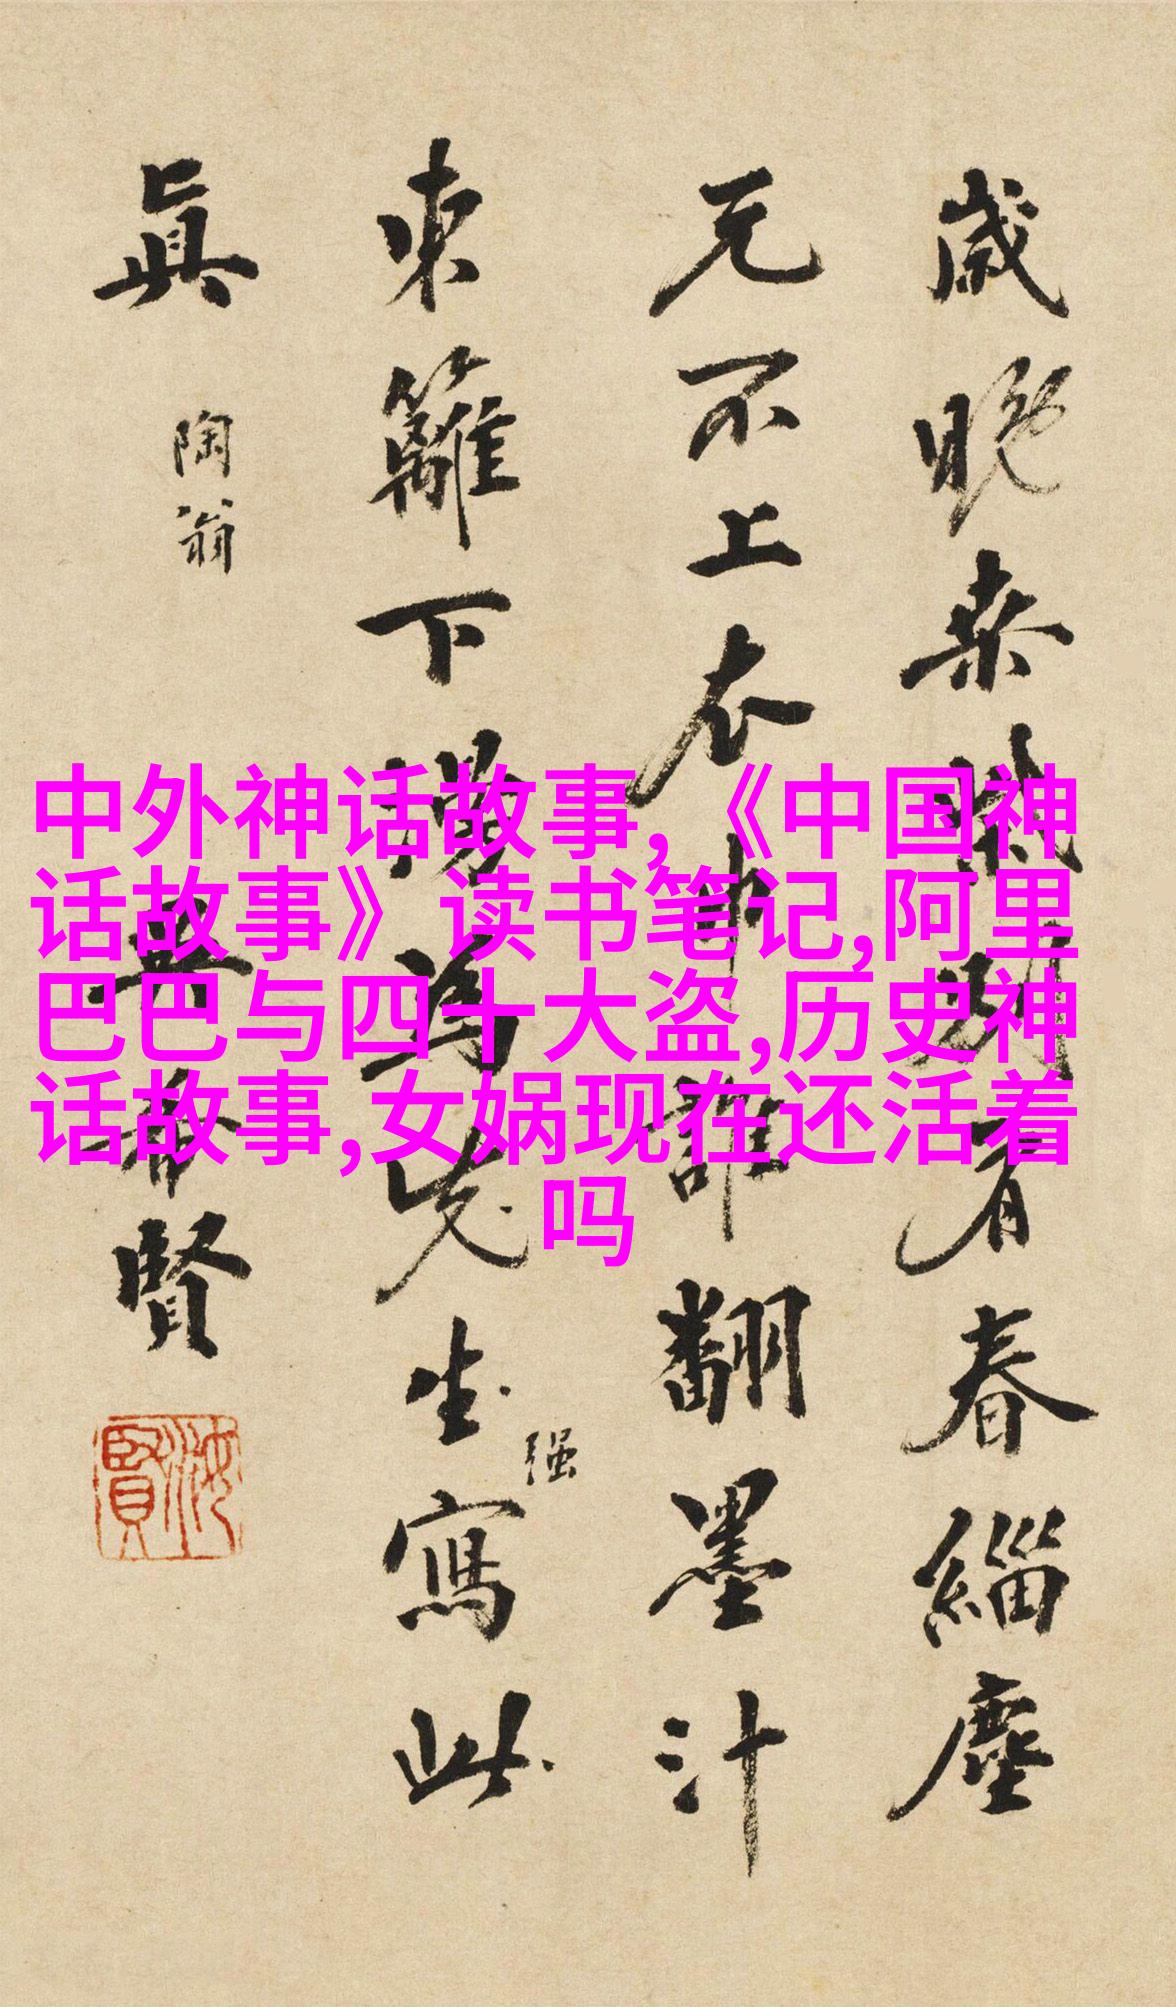 中外神话故事,《中国神
话故事》读书笔记,阿里
巴巴与四十大盗,历史神
话故事,女娲现在还活着
吗
歳晚来
看春緇塵
元不上衣巾誰翻墨汁
東籬下
為先生寫此
真
陶翁
賢
强